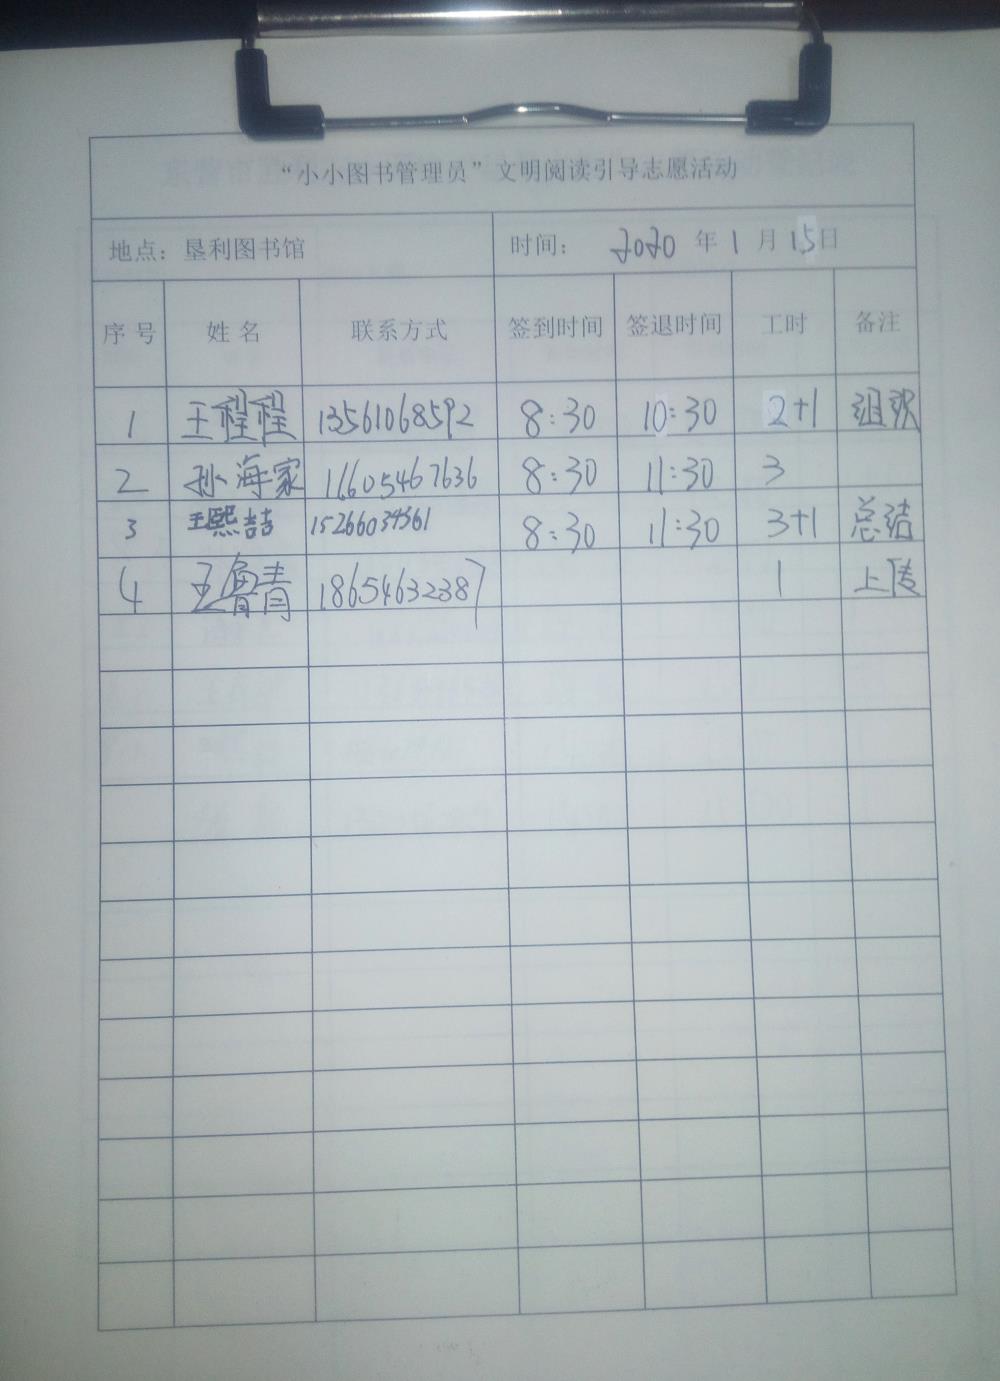 “小小图书管理员”文明阅读引导志愿活动
地点：垦利图书馆 时间： 2020 年 1 月 15 日
序号 姓名 联系方式 签到时间 签退时间 工时 备注
1 王程程 13561068592 8:30 10:30 2+1 组织
2 孙海家 16605467636 8:30 11:30 3
3 王熙喆 15266034561 8:30 11:30 3+1 总结
4 王鲁青 18654632387 1 上传